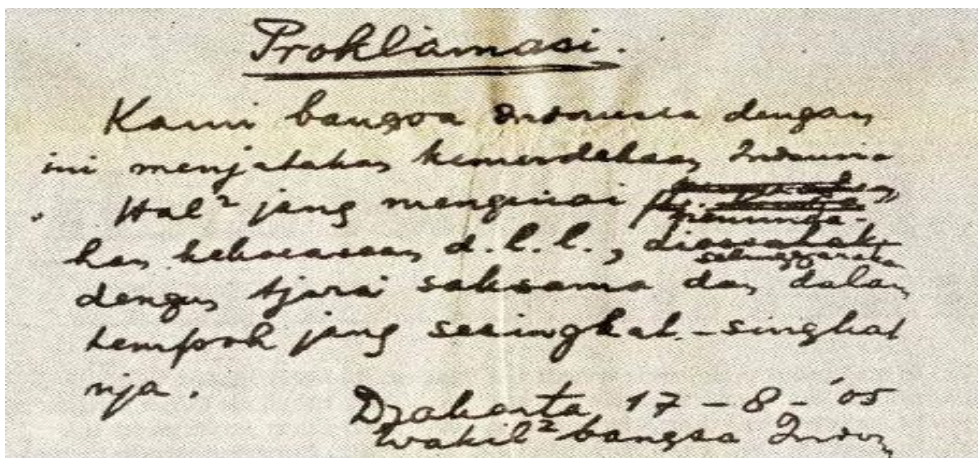 Proklamasi.
Kami bangsa Indonesia dengan
ini menjatakan kemerdekaan Indonesia
. Hal² jang mengenai pemindah-
kan kekoeasaan d.l.l.,
diselenggarakan
dengan tjara saksama dan dalam
tempoh jang sesingkat-singkat
nja.
Djakarta 17 - 8 - '05
Wakil² bangsa Indon